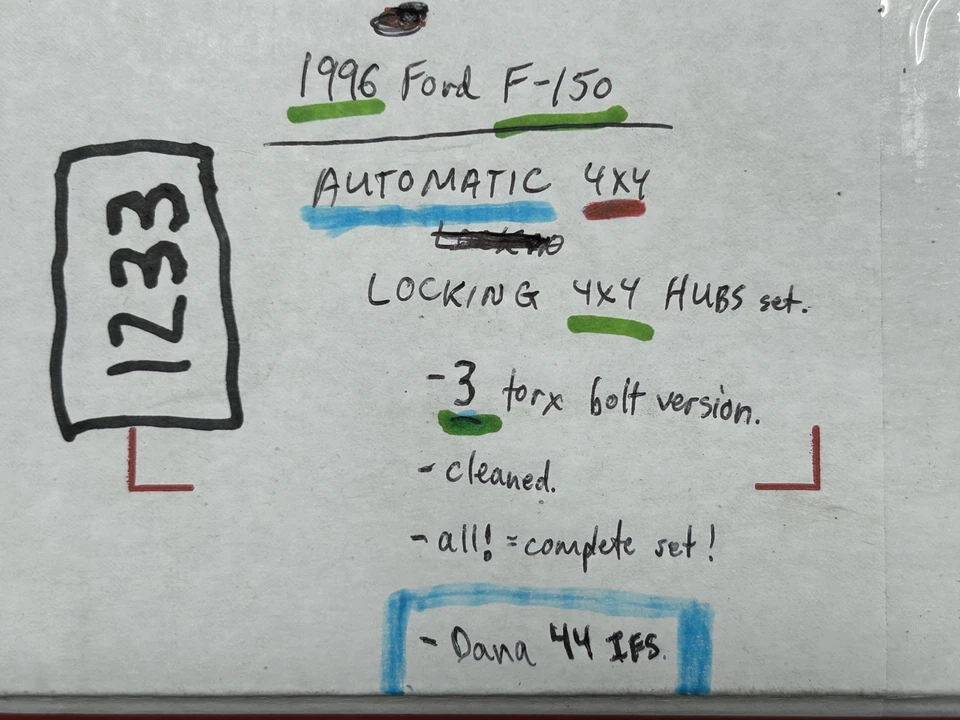 1996 Ford F-150
AUTOMATIC 4x4
LOCKING 4x4 HUBS set.
-3 torx bolt version.
- cleaned.
- all! = complete set!
- Dana 44 IFS.
1233